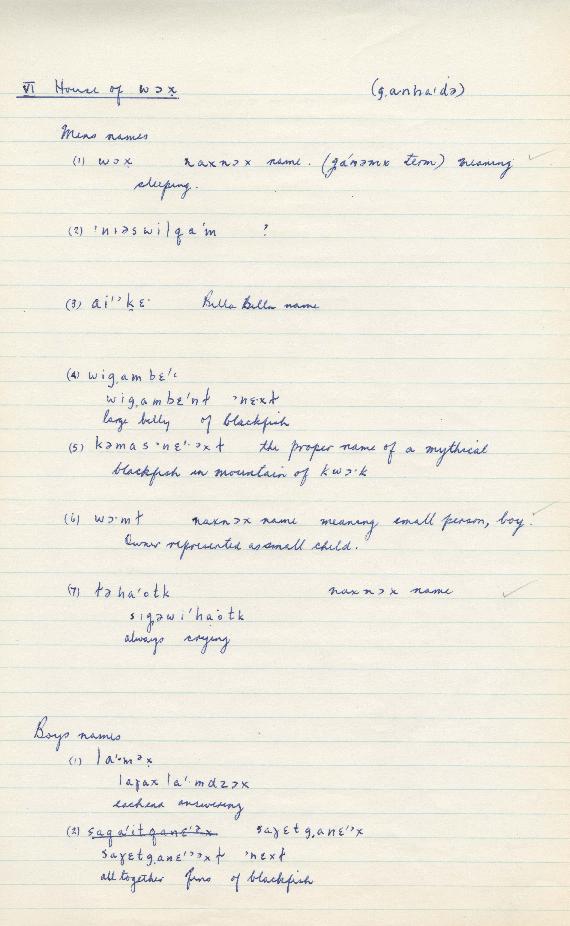 VI House of wɔx̣ (g̣anha'də)
Mens names
(1) wɔx̣ naxnɔx name. (gánəmx term) meaning
sleeping.
(2) 'nıəswilga'm ?
(3) ai''ḳɛ· Bella Bella name
(4) wig̣ambɛ'
wig̣ambɛ'nɫ 'nɛxɫ
large belly of blackfish
(5) kəmas'nɛ'·əxɫ the proper name of a mythical
blackfish in mountain of kwɔ·k
(6) wɔ·mɫ naxnɔx name meaning small person, boy.
Owner represented as small child.
(7) ɫəha'otk naxnɔx name
sıg̣əwi'ha'otk
always crying
Boys names
(1) la'·məx̣
laɣax la'·mdzəx
answering
(2) sag̣a'itg̣anɛ''x saɣɛtg̣anɛ''x
saɣɛtg̣anɛ''əxɫ 'nɛxɫ
all together fins of blackfish